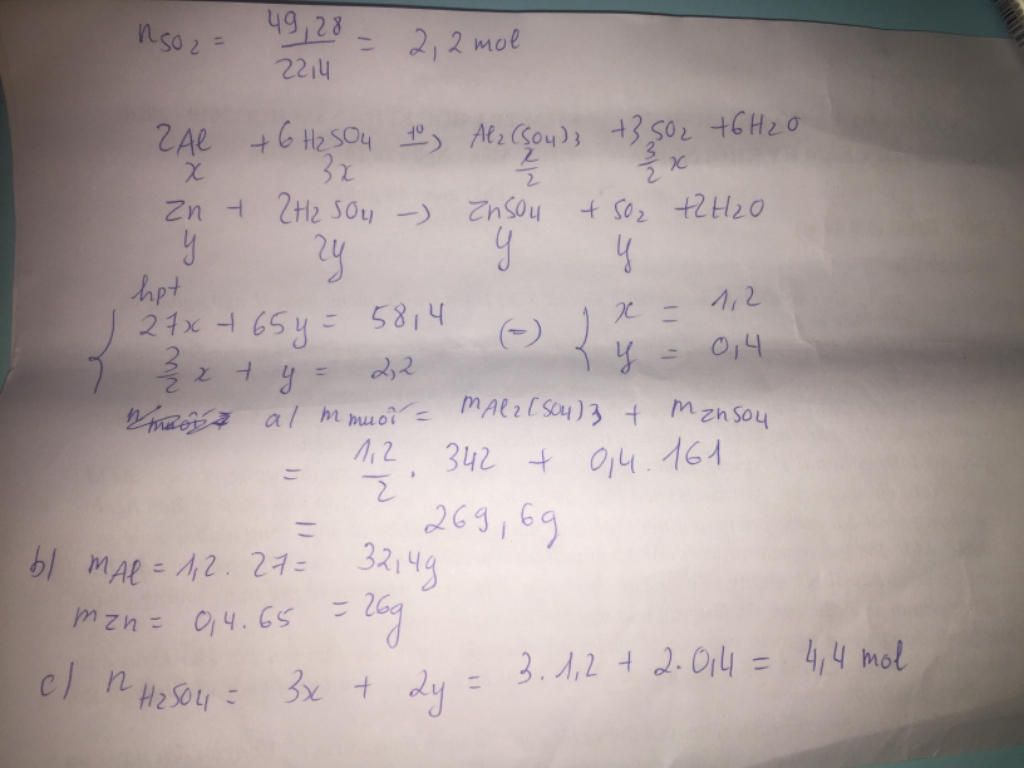 nSO2 = 49,28/22,4 = 2,2 mol
2Al + 6H2SO4 t°→ Al2(SO4)3 + 3SO2 + 6H2O
x 3x x/2 3/2 x
Zn + 2H2SO4 → ZnSO4 + SO2 + 2H2O
y 2y y y
hpt
{ 27x + 65y = 58,4 (=) { x = 1,2
3/2 x + y = 2,2 y = 0,4
a/ m muối = mAl2(SO4)3 + mZnSO4
= 1,2/2 . 342 + 0,4 . 161
= 269,6g
b/ mAl = 1,2 . 27 = 32,4g
mZn = 0,4 . 65 = 26g
c/ nH2SO4 = 3x + 2y = 3 . 1,2 + 2 . 0,4 = 4,4 mol